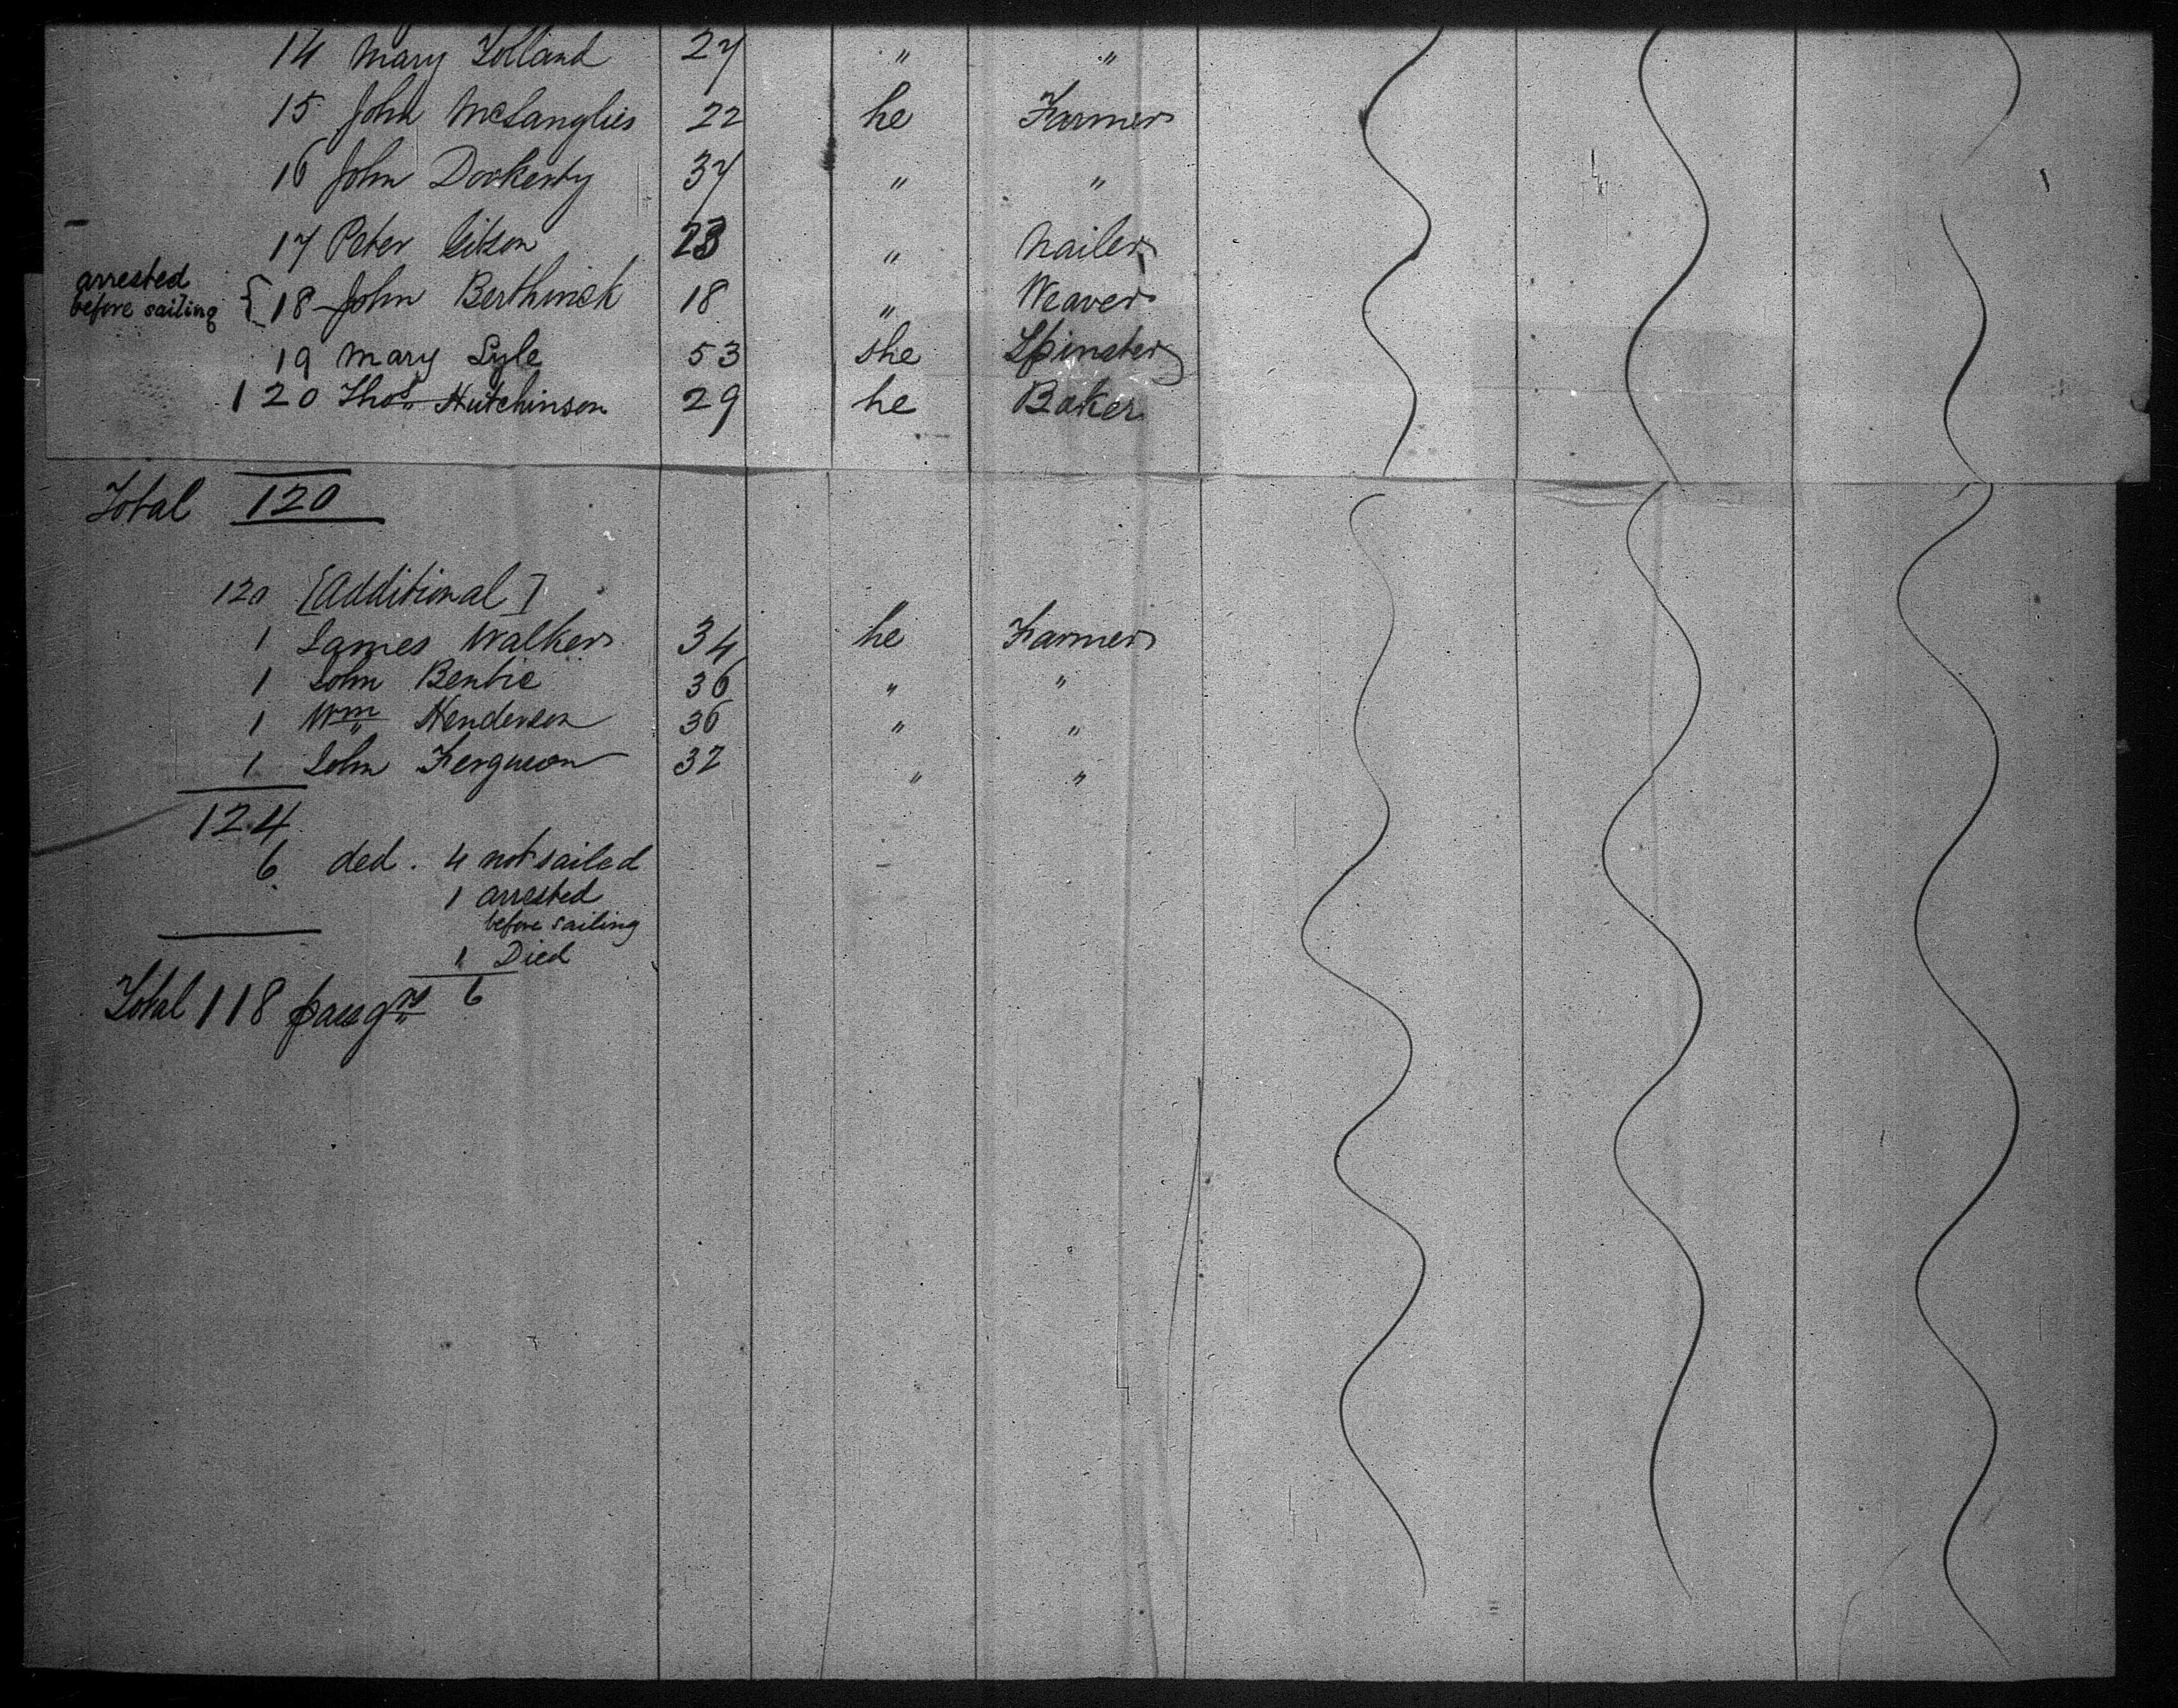 14 Mary Tolland 27 " "
15 John McLanglies 22 he Farmer
16 John Dockerty 37 " "
17 Peter Gitson 23 " Nailer
arrested
before sailing { 18 John Berthinck 18 " Weaver
19 Mary Lyle 53 she Spinster
120 Thos. Hutchinson 29 he Baker
Total 120
120 [Additional]
1 James Walker 34 he Farmer
1 John Bentie 36 " "
1 Wm Henderson 36 " "
1 John Ferguson 32 " "
124
6 ded. 4 not sailed
1 arrested
before sailing
1 Died
Total 118 passgrs 6